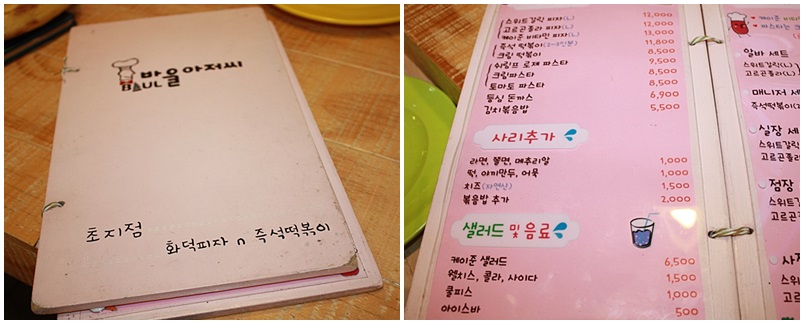 방울아저씨
초지점
화덕피자 n 즉석떡볶이
스위트갈릭 피자(L) 12,000
고르곤졸라 피자(L) 12,000
케이준 비타민 피자(L) 13,000
즉석 떡볶이(2~3인분) 11,800
크림 떡볶이 8,500
쉬림프 로제 파스타 9,500
크림파스타 8,500
토마토 파스타 8,500
등심 돈까스 6,900
김치볶음밥 5,500
사리추가
라면, 쫄면, 메추리알 1,000
떡, 야끼만두, 어묵 1,000
치즈(자연산) 1,500
볶음밥 추가 2,000
샐러드 및 음료
케이준 샐러드 6,500
웰치스, 콜라, 사이다 1,500
쿨피스 1,000
아이스바 500
알바 세트
스위트갈릭(L)
고르곤졸라(L)
매니저 세
즉석떡볶이(
실장 세
스위트갈릭
고르곤졸라
점장
스위트갈
고르곤졸